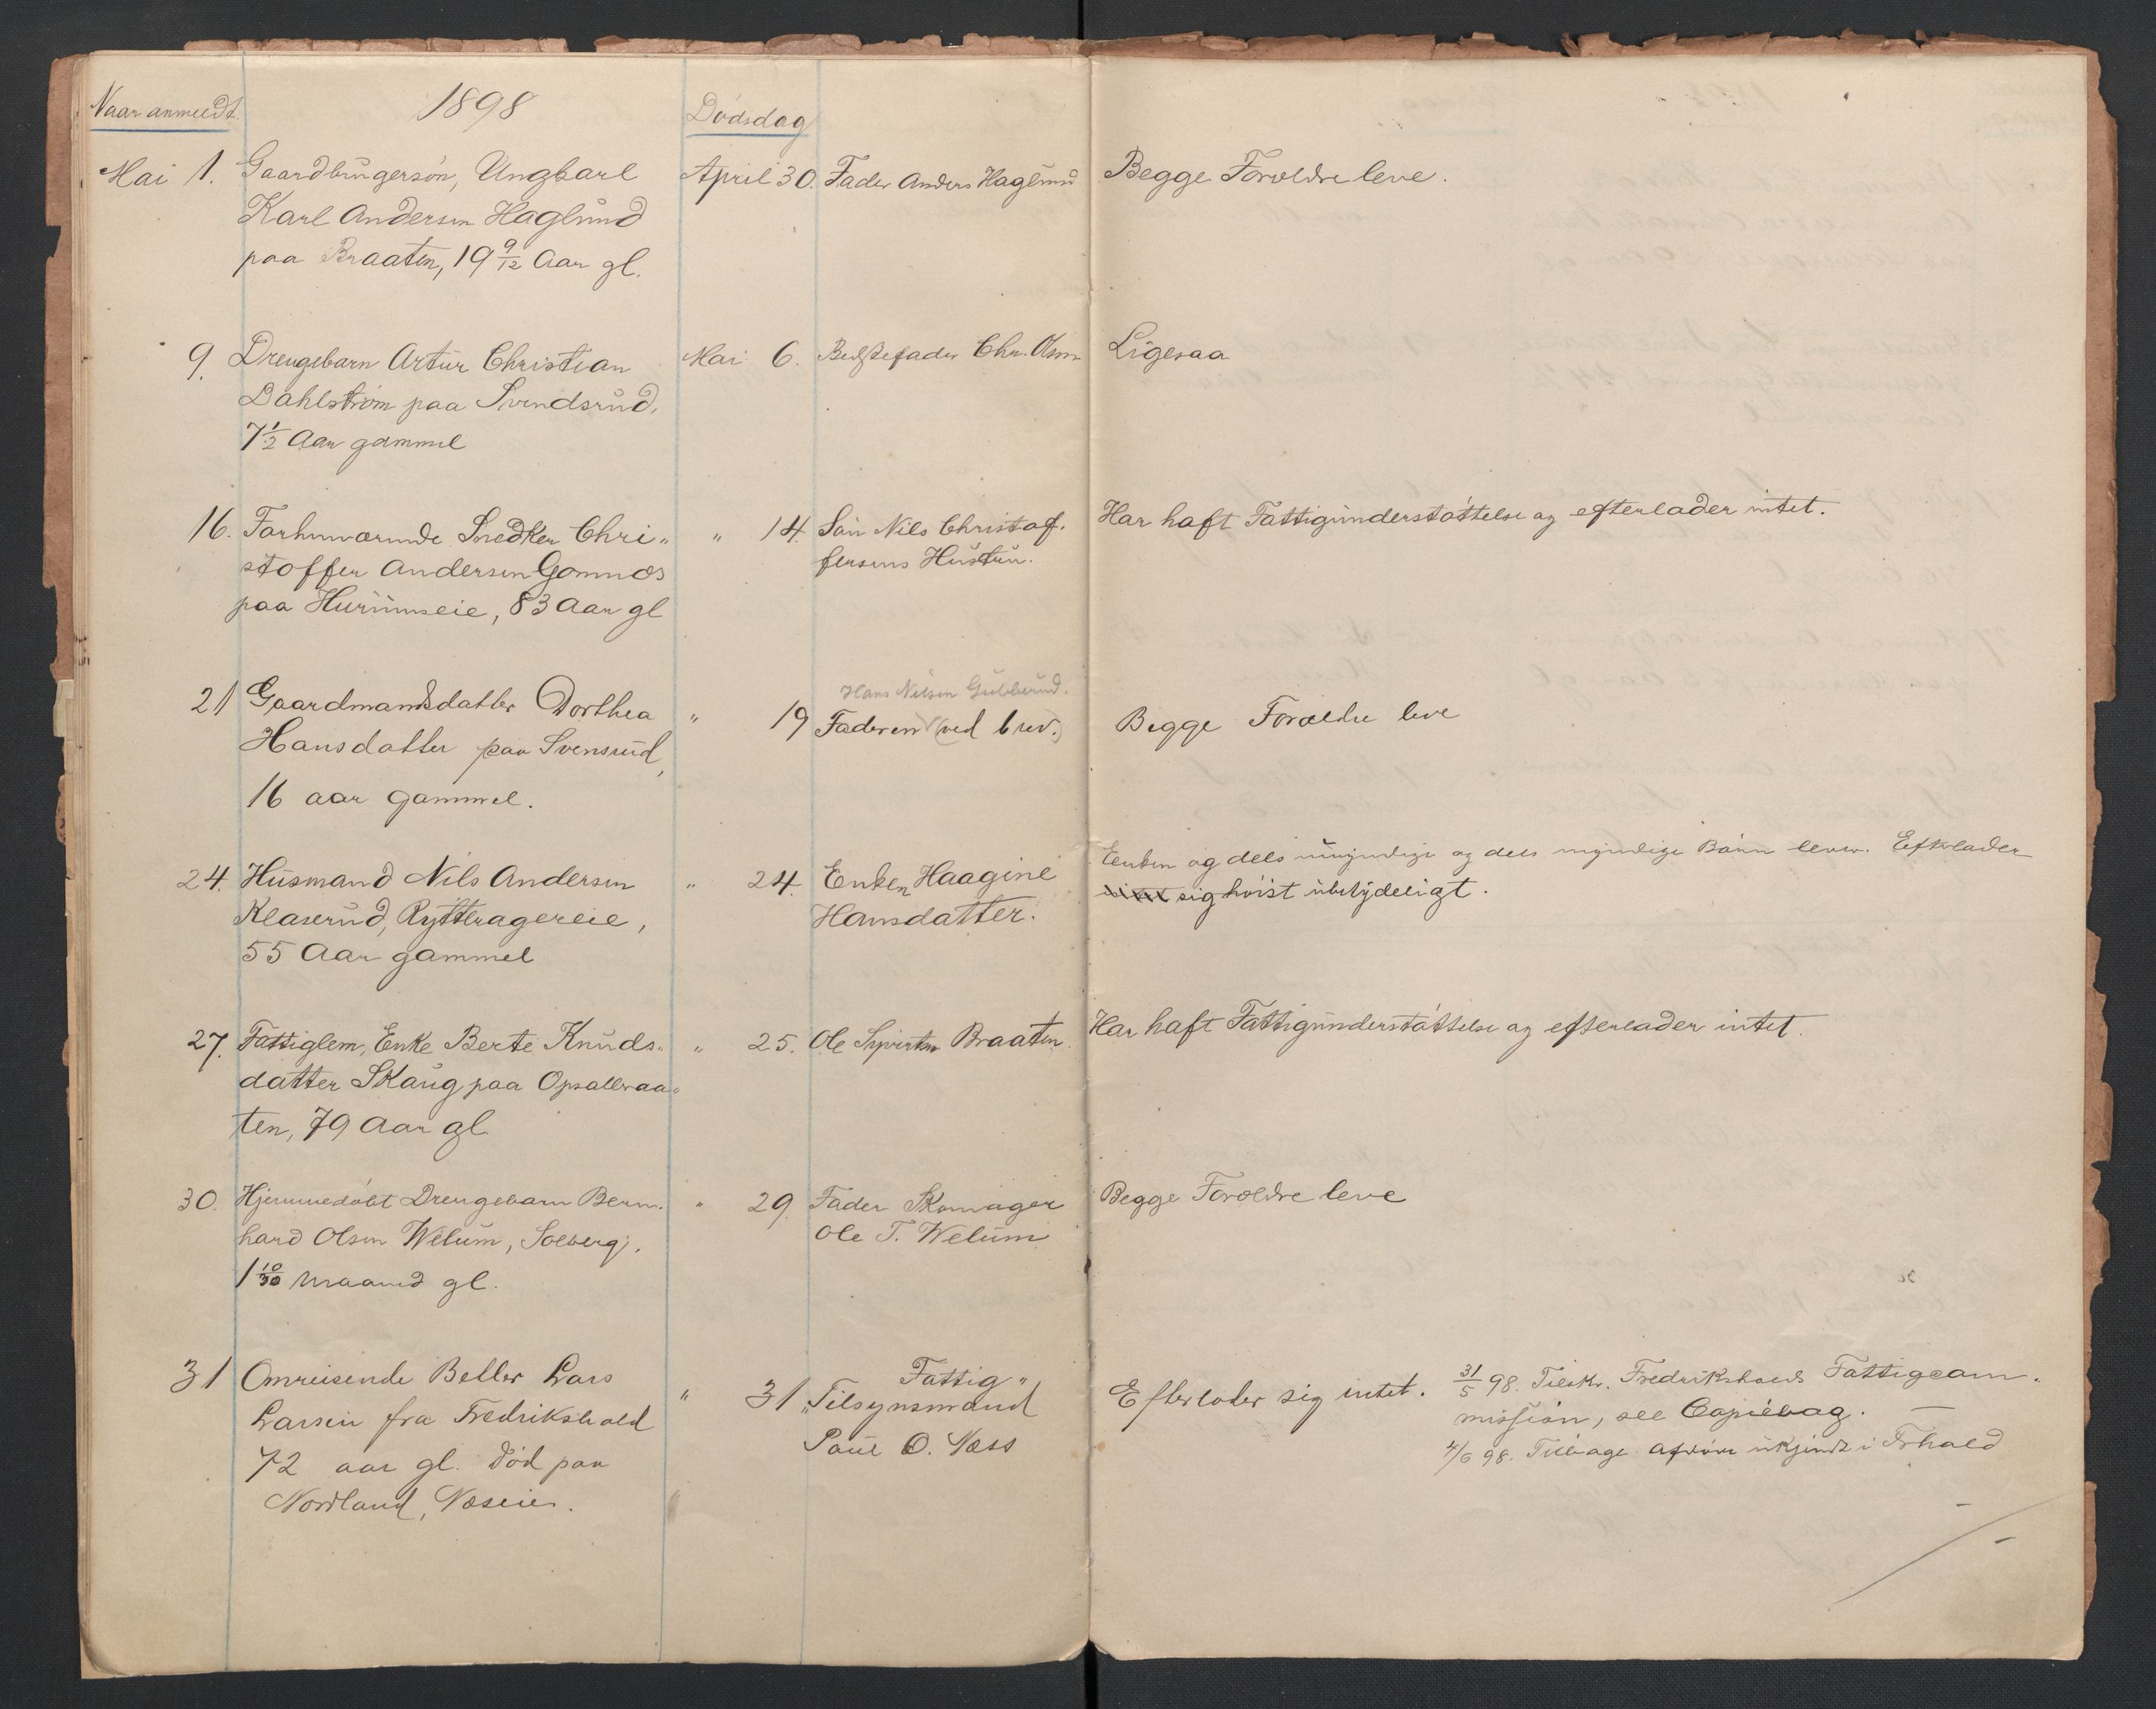 Naar anmeldt. 1898 Dödsdag
Mai 1. Gaardbrugersön, Ungkarl April 30. Fader Anders Haglund Begge Forældre leve.
Karl Andersen Haglund
paa Braaten, 19 9/12 Aar gl.
9. Drengebarn Artur Christian Mai 6. Bedstefader Chr. Olsen Ligesaa
Dahlström paa Svendsrud,
7 1/2 Aar gammel
16. Forhenværende Snedker Chri„ „ 14. Sön Nils Christof. Har haft Fattigunderstöttelse og efterlader intet.
stoffer Andersen Gomnæs fersens Hustru.
paa Hurumseie, 83 Aar gl
Hans Nilsen Gulberud.
21 Gaardmandsdatter Dorthea „ 19 Faderen (ved brev.) Begge Forældre leve
Hansdatter paa Svensrud,
16 aar gammel.
Enken og dels umyndige og dels myndige Börn lever. Efterlader
24. Husmand Nils Andersen „ 24. Enken Haagine
Klaserud, Rytteragereie, Hansdatter. sig höist ubetydeligt.
55 Aar gammel
27. Fattiglem, Enke Berte Knuds„ „ 25. Ole Syvertsen Braaten. Har haft Fattigunderstöttelse og efterlader intet.
datter Skaug paa Opsalbraa„
ten, 79 Aar gl.
30. Hjemmedöbt Drengebarn Bern„ „ 29. Fader Skomager Begge Forældre leve
hard Olsen Welum, Solberg, Ole T. Welum
1 10/30 Maaned gl.
31 Omreisende Betler Lars „ 31 Fattig„ Efterlader sig intet. 31/5 98. Tilskr. Fredrikshalds Fattigcom.
Larsen fra Fredrikshald „Tilsynsmand mission, see Copiebog. —
72 aar gl. Död paa Paul O. Næss 4/6 98. Tilbage. Afdöde ukjendt i Frhald
Nordland, Næseie.